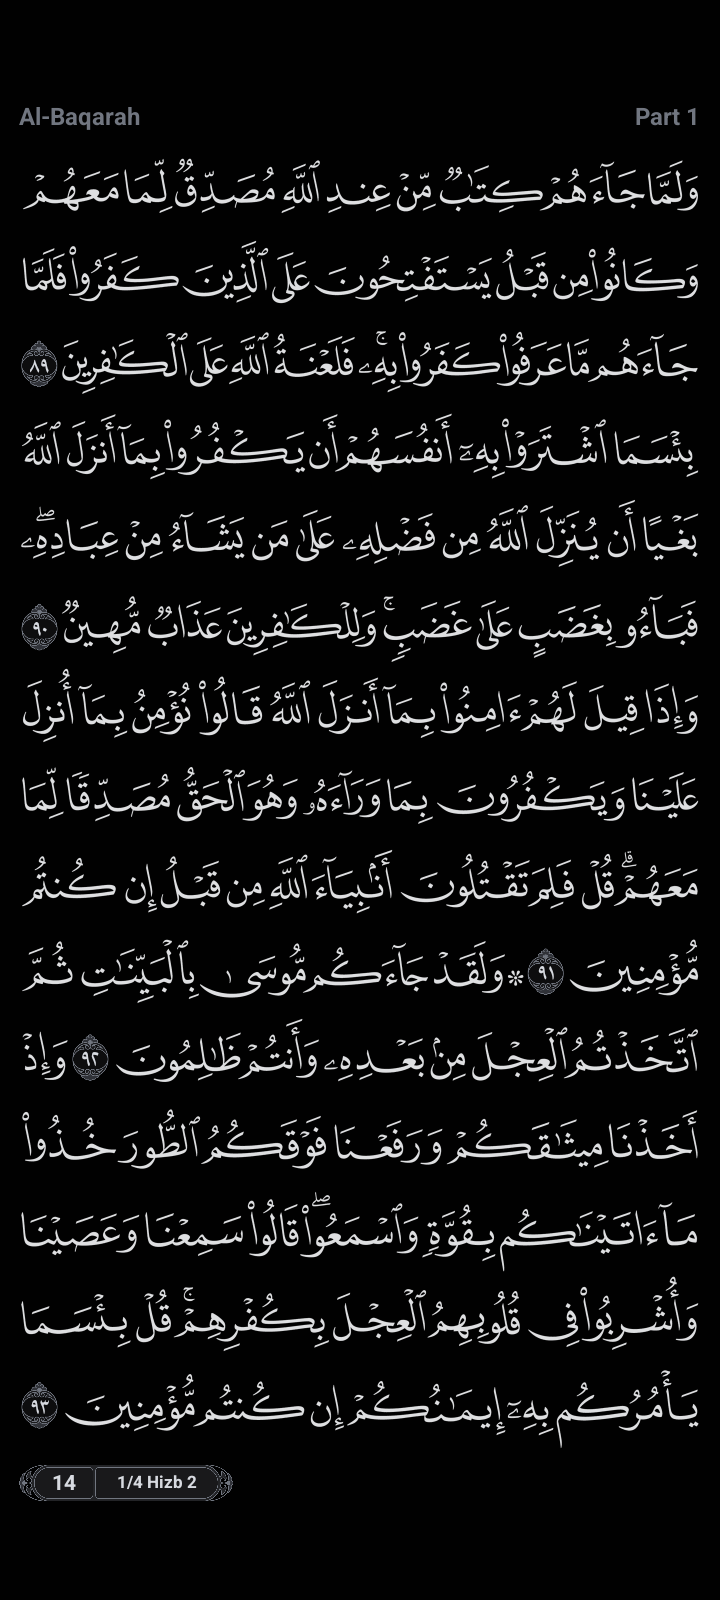 Al-Baqarah Part 1
وَلَمَّا جَآءَهُمْ كِتَٰبٌ مِّنْ عِندِ ٱللَّهِ مُصَدِّقٌ لِّمَا مَعَهُمْ
وَكَانُوا۟ مِن قَبْلُ يَسْتَفْتِحُونَ عَلَى ٱلَّذِينَ كَفَرُوا۟ فَلَمَّا
جَآءَهُم مَّا عَرَفُوا۟ كَفَرُوا۟ بِهِۦ ۚ فَلَعْنَةُ ٱللَّهِ عَلَى ٱلْكَٰفِرِينَ ٨٩
بِئْسَمَا ٱشْتَرَوْا۟ بِهِۦٓ أَنفُسَهُمْ أَن يَكْفُرُوا۟ بِمَآ أَنزَلَ ٱللَّهُ
بَغْيًا أَن يُنَزِّلَ ٱللَّهُ مِن فَضْلِهِۦ عَلَىٰ مَن يَشَآءُ مِنْ عِبَادِهِۦ ۖ
فَبَآءُو بِغَضَبٍ عَلَىٰ غَضَبٍ ۚ وَلِلْكَٰفِرِينَ عَذَابٌ مُّهِينٌ ٩٠
وَإِذَا قِيلَ لَهُمْ ءَامِنُوا۟ بِمَآ أَنزَلَ ٱللَّهُ قَالُوا۟ نُؤْمِنُ بِمَآ أُنزِلَ
عَلَيْنَا وَيَكْفُرُونَ بِمَا وَرَآءَهُۥ وَهُوَ ٱلْحَقُّ مُصَدِّقًا لِّمَا
مَعَهُمْ ۗ قُلْ فَلِمَ تَقْتُلُونَ أَنۢبِيَآءَ ٱللَّهِ مِن قَبْلُ إِن كُنتُم
مُّؤْمِنِينَ ٩١ ۞ وَلَقَدْ جَآءَكُم مُّوسَىٰ بِٱلْبَيِّنَٰتِ ثُمَّ
ٱتَّخَذْتُمُ ٱلْعِجْلَ مِنۢ بَعْدِهِۦ وَأَنتُمْ ظَٰلِمُونَ ٩٢ وَإِذْ
أَخَذْنَا مِيثَٰقَكُمْ وَرَفَعْنَا فَوْقَكُمُ ٱلطُّورَ خُذُوا۟
مَآ ءَاتَيْنَٰكُم بِقُوَّةٍ وَٱسْمَعُوا۟ ۖ قَالُوا۟ سَمِعْنَا وَعَصَيْنَا
وَأُشْرِبُوا۟ فِى قُلُوبِهِمُ ٱلْعِجْلَ بِكُفْرِهِمْ ۚ قُلْ بِئْسَمَا
يَأْمُرُكُم بِهِۦٓ إِيمَٰنُكُمْ إِن كُنتُم مُّؤْمِنِينَ ٩٣
14 1/4 Hizb 2